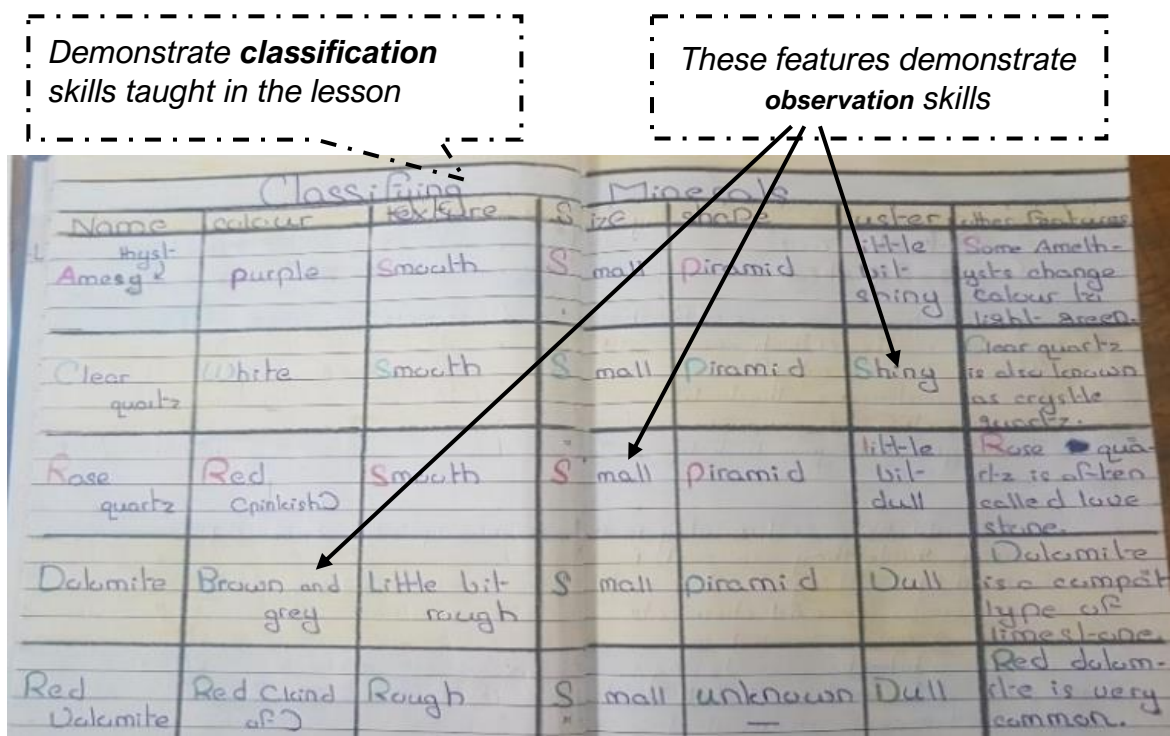 Demonstrate classification
skills taught in the lesson
These features demonstrate
observation skills
Classifying Minerals
Name colour texture Size shape luster other Features
Amesy thyst- purple Smooth Small Piramid little bit shiny Some Ameth-
ysts change
colour
light green.
Clear quartz White Smooth Small Piramid Shiny Clear quartz
is also known
as crystle
quartz.
Rose quartz Red (pinkish) Smooth Small Piramid little bit dull Rose qua-
rtz is often
called love
stone.
Dolomite Brown and grey Little bit rough Small Piramid Dull Dolomite
is a compat
type of
limestone.
Red Dolomite Red (kind of) Rough Small unknown Dull Red dolom-
ite is very
common.